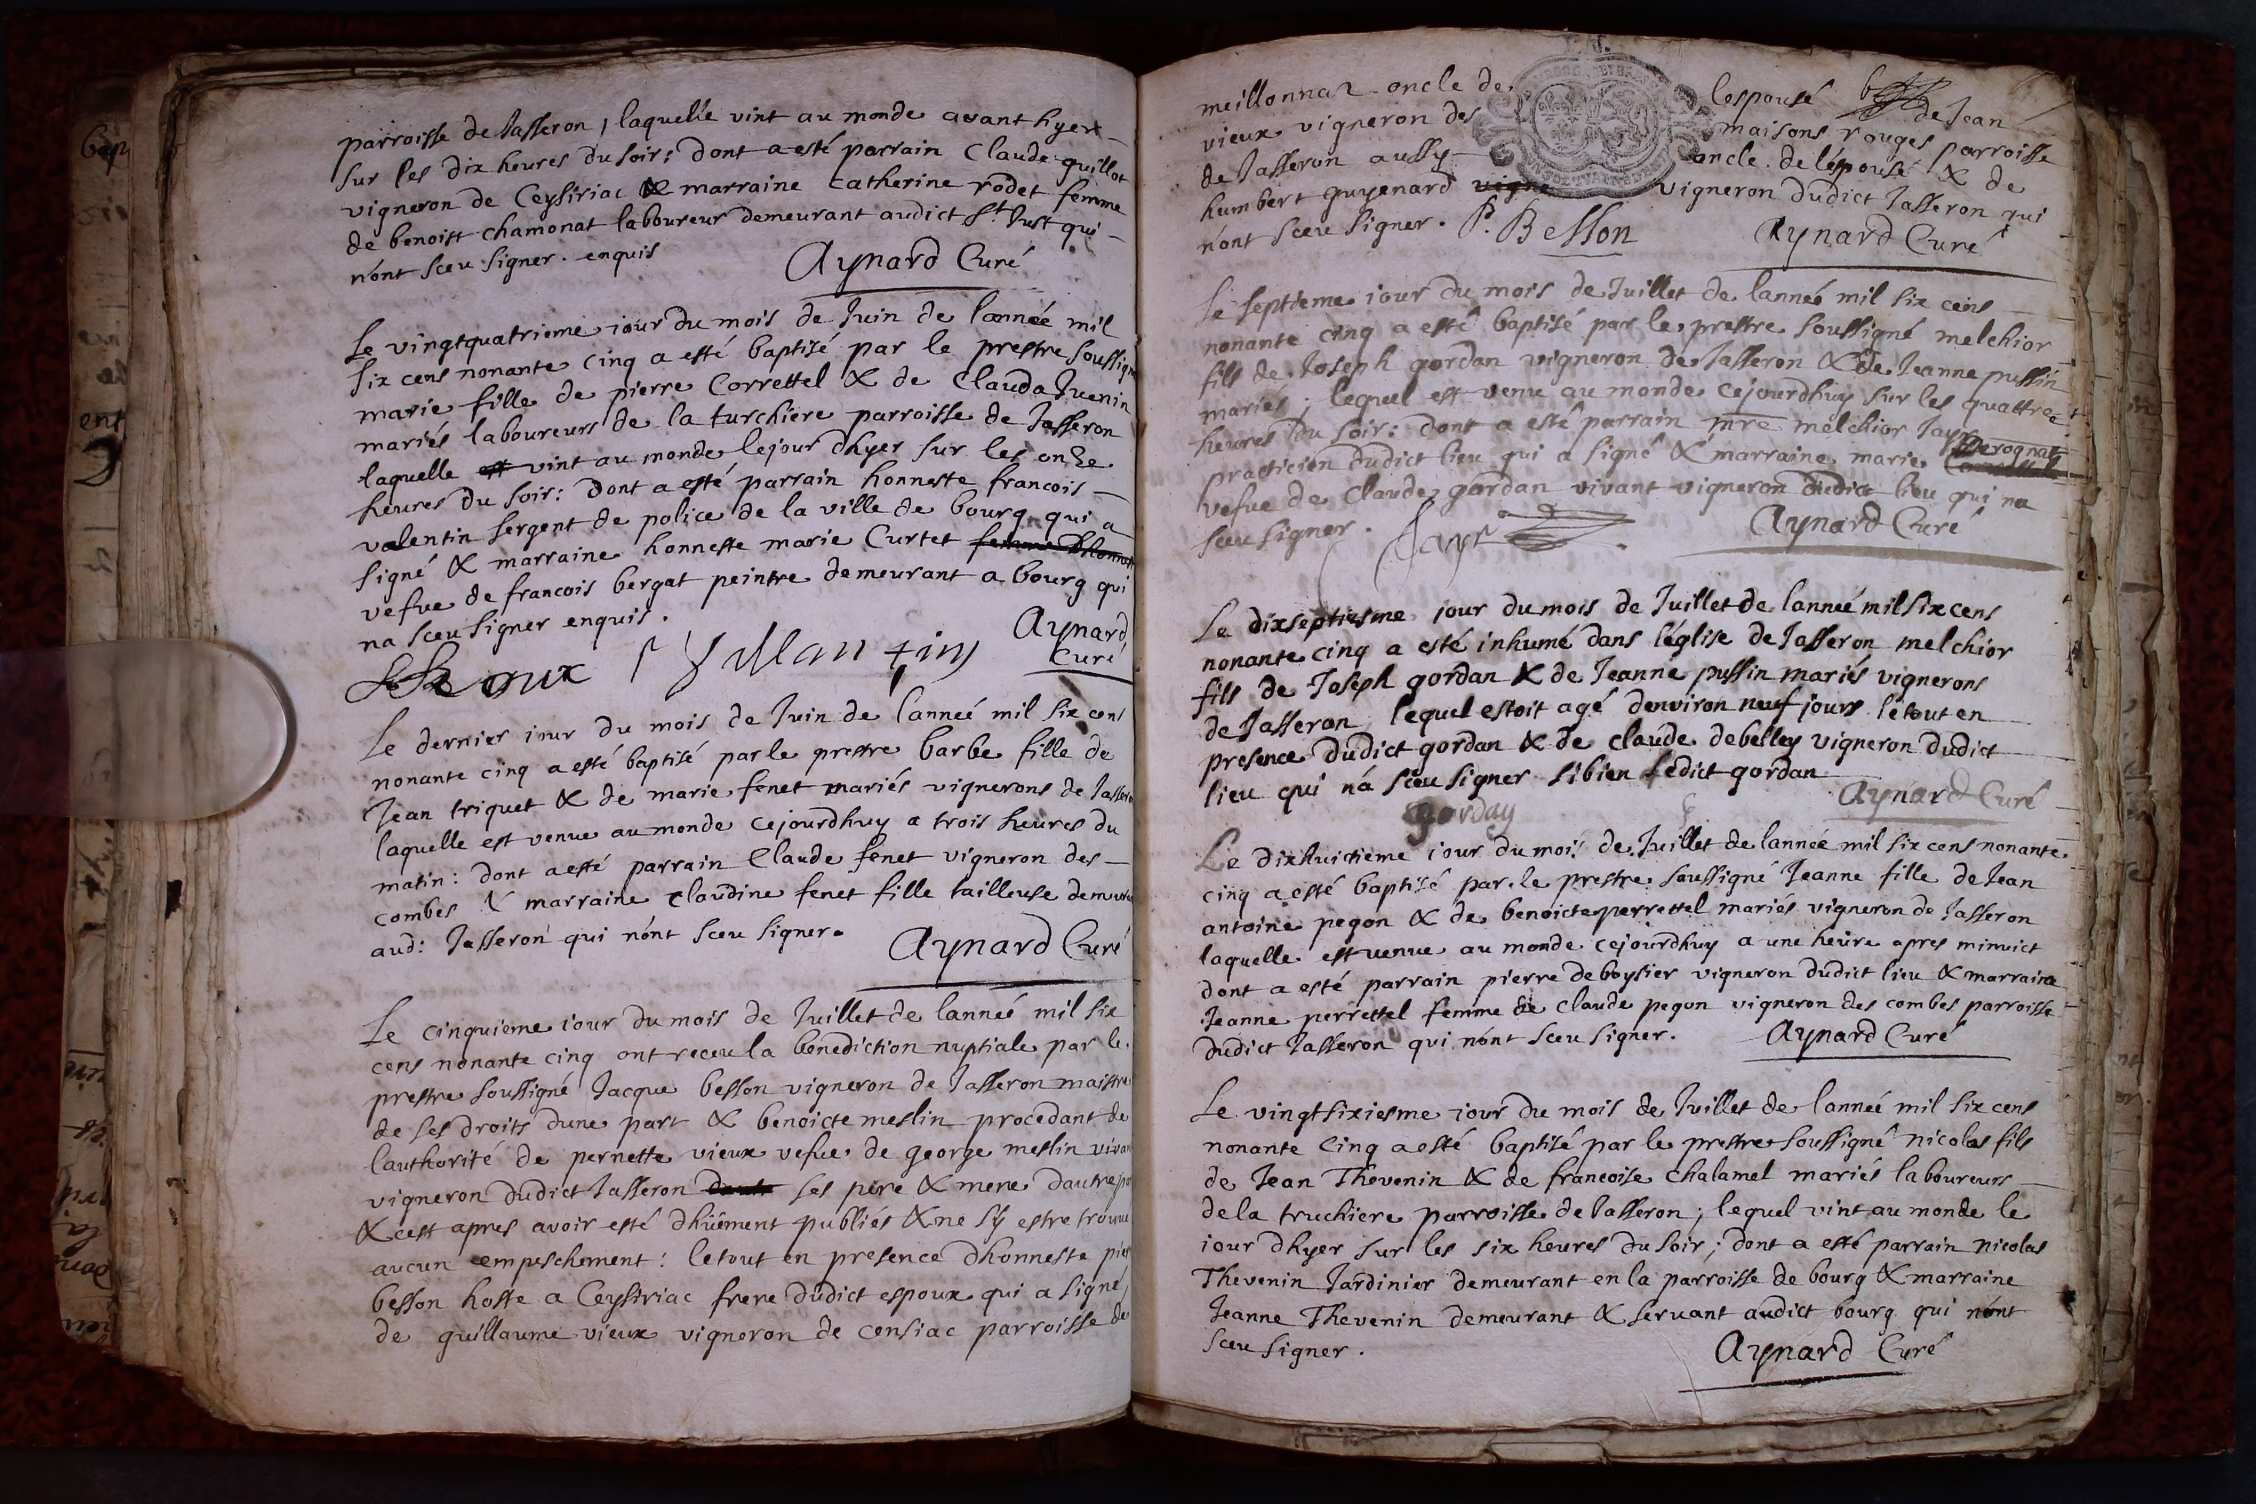 parroisse de Jasseron, laquelle vint au monde avant hyer
sur les dix heures du soir: dont a esté parrain Claude guillot
vigneron de Ceysiriac & marraine Catherine rodet femme
de benoist chamonat laboureur demeurant audict St Just qui
n'ont sceu signer. enquis
Aynard Curé
Le vingtquatrieme iour du mois de Juin de lannée mil
six cens nonante cinq a esté baptisé par le prestre soussigné
marie fille de pierre Correttel & de Clauda Juenin
mariés laboureurs de la turchiere parroisse de Jasseron
laquelle est vint au monde le jour dhyer sur les onze
heures du soir: dont a esté parrain honneste francois
valentin sergent de police de la ville de bourg qui a
signé & marraine honneste marie Curtet femme dhonn
vefue de francois bergat peintre demeurant a bourg qui
na sceu signer enquis.
Aynard
Curé
Le dernier iour du mois de Juin de lanneé mil six cens
nonante cinq a esté baptisé par le prestre barbe fille de
Jean triquet & de marie fenet mariés vignerons de Jassero
laquelle est venue au monde cejourdhuy a trois heures du
matin: dont a esté parrain Claude fenet vigneron des
combes & marraine claudine fenet fille tailleuse demeura
aud: Jasseron qui nónt sceu signer.
Aynard Curé
Le cinquieme iour du mois de Juillet de lanneé mil six
cens nonante cinq ont receu la bénediction nuptiale par le
prestre soussigné Jacque besson vigneron de Jasseron maistre
de ses droits dune part & benoicte meslin procedant de
lauthorité de pernette vieux vefue de george meslin vivan
vigneron dudict Jasseron ses pere & mere dautre par
& cest apres avoir esté dhüement publiés & ne sÿ estre trouue
aucun empeschement: le tout en presence dhonneste pier
besson hoste a Ceysiriac frere dudict espoux qui a signé,
de guillaume vieux vigneron de censiac parroisse de
meillonnaz oncle de lespousé de Jean
vieux vigneron des maisons rouges parroisse
de Jasseron aussy oncle de léspousé & de
humbert guyenard vigne vigneron dudict Jasseron qui
n'ont sceu signer. P. Besson Aynard Curé
Le septieme iour du mois de Juillet de lanneé mil six cens
nonante cinq a esté baptisé par le prestre soussigné melchior
fils de Joseph gordan vigneron de Jasseron & de Jeanne pussin
mariés; lequel est venu au monde cejourdhuy sur les quattre
heures du soir: dont a esté parrain mre melchior Jayr
practicien dudict lieu qui a signé & marraine marie perognat
vefue de Claude gordan vivant vigneron dudict lieu qui na
sceu signer. Jayr Aynard Curé
Le dixseptiesme jour du mois de Juillet de lanneé mil six cens
nonante cinq a esté inhumé dans l'église de Jasseron melchior
fils de Joseph gordan & de Jeanne pussin mariés vignerons
de Jasseron, lequel estoit agé denviron neuf jours le tout en
presence dudict gordan & de claude debelley vigneron dudict
lieu qui ná sceu signer si bien ledict gordan
gorday Aynard Curé
Le dixhuictieme iour du mois de Juillet de lannée mil six cens nonante
cinq a esté baptisé par le prestre soussigné Jeanne fille de Jean
antoine pegon & de benoicte perrettel mariés vigneron de Jasseron
laquelle est venue au monde cejourdhuy a une heure apres minuict
dont a esté parrain pierre deboysier vigneron dudict lieu & marraine
Jeanne perrettel femme de Claude pegon vigneron des combes parroisse
dudict Jasseron qui nónt sceu signer. Aynard Curé
Le vingtsixiesme iour du mois de Juillet de lanneé mil six cens
nonante cinq a esté baptisé par le prestre soussigné nicolas fils
de Jean Thevenin & de francoise Chalamel mariés laboureurs
de la truchiere parroisse de Jasseron, lequel vint au monde le
iour dhyer sur les six heures du soir; dont a esté parrain nicolas
Thevenin Jardinier demeurant en la parroisse de bourg & marraine
Jeanne Thevenin demeurant & seruant audict bourg qui nónt
sceu signer.
Aynard Curé